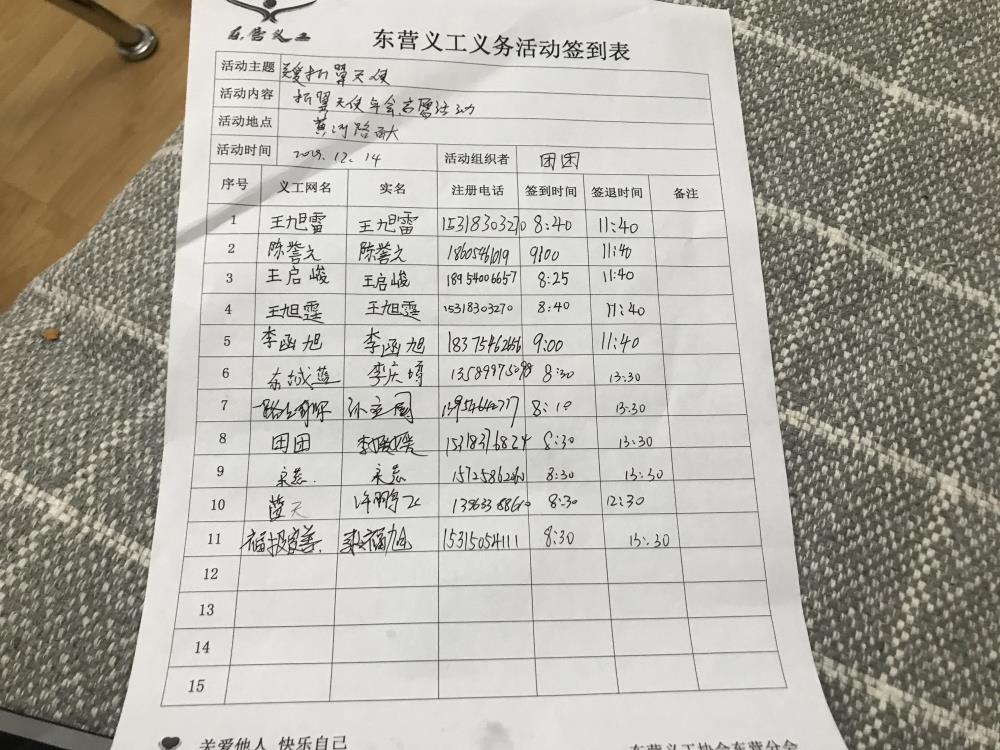 东营义工
东营义工义务活动签到表
活动主题 折翼天使
活动内容 折翼天使年会志愿活动
活动地点 黄河路
活动时间 2019.12.14 活动组织者 团团
序号 义工网名 实名 注册电话 签到时间 签退时间 备注
1 王旭雷 王旭雷 15318303270 8:40 11:40
2 陈誉元 陈誉元 18605461019 9:00 11:40
3 王启峻 王启峻 18954006657 8:25 11:40
4 王旭霆 王旭霆 15318303270 8:40 11:40
5 李函旭 李函旭 18375462656 9:00 11:40
6 东城蓝 李庆 8:30 13:30
7 8:10 13:30
8 团团 15318376824 8:30 13:30
9 8:30 13:30
10 蓝天 许鹏飞 8:30 12:30
11 15315054111 8:30 13:30
12
13
14
15
关爱他人 快乐自己
东营义工协会东营分会